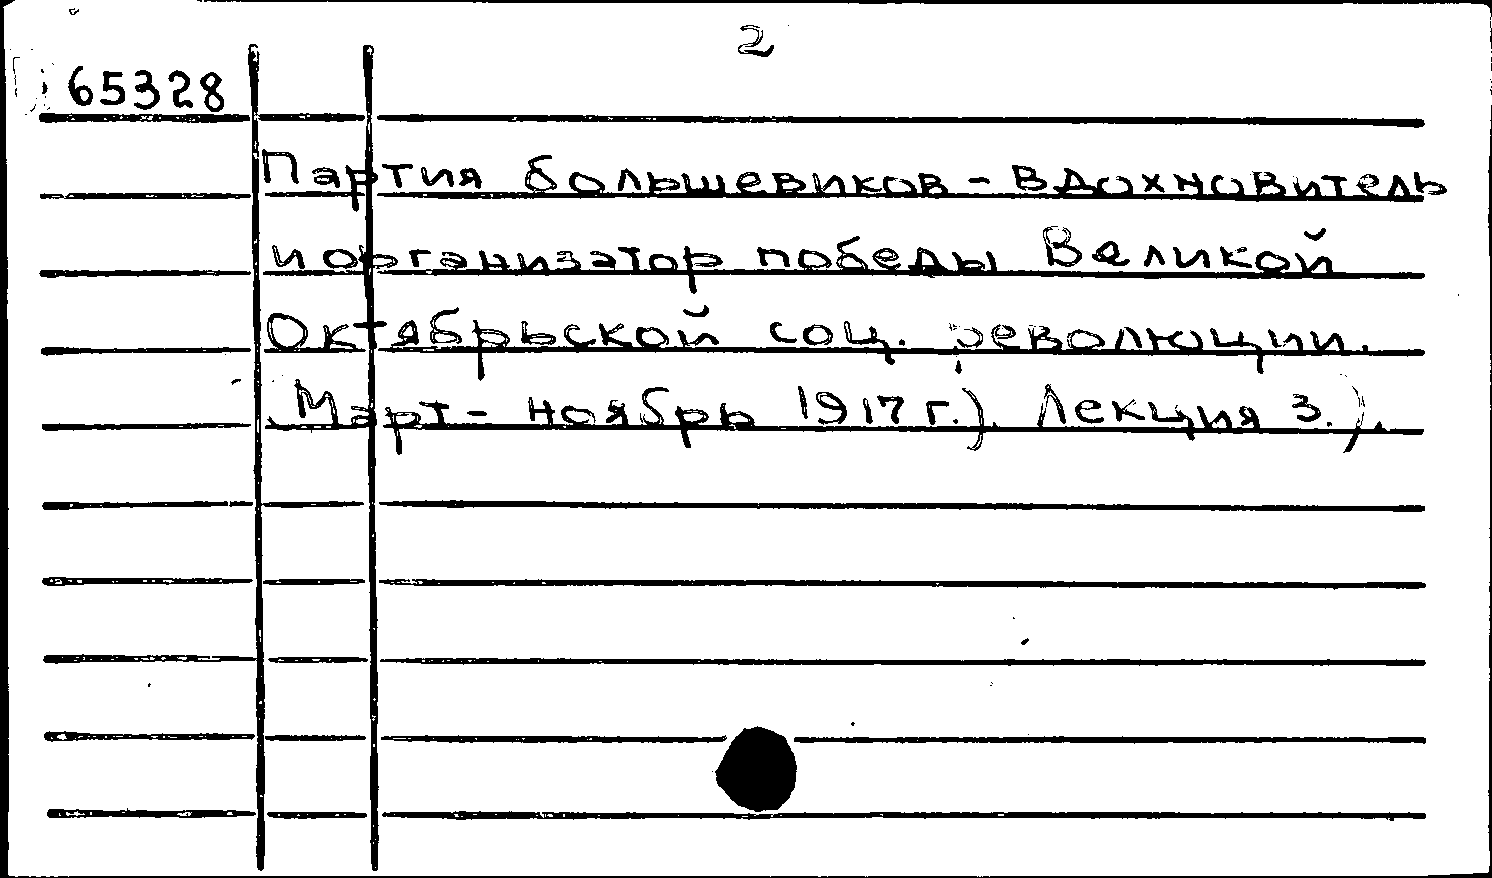 2
65328
Партия большевиков - вдохновитель
и организатор победы Великой
Октябрьской соц. революции.
(Март - ноябрь 1917 г.). Лекция 3.).